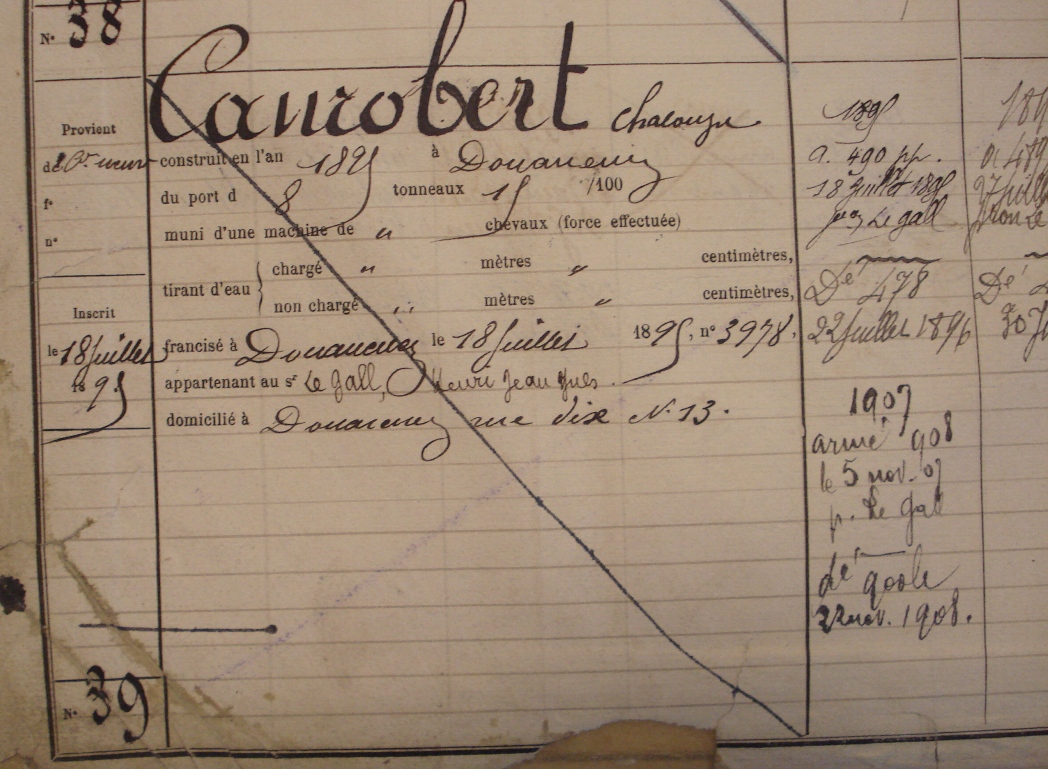 N° 38
Canrobert chaloupe
Provient
de
f°
n°
construit en l'an 1895 à Douarnenez
du port d 8 tonneaux 15 /100
muni d'une machine de " chevaux (force effectuée)
tirant d'eau
chargé " mètres " centimètres,
non chargé " mètres " centimètres,
Inscrit
le 18 Juillet
1895
francisé à Douarnenez le 18 Juillet 1895, n° 3978,
appartenant au sr Le Gall, Henri Jean
domicilié à Douarnenez rue dixe N. 13.
1895
a. 490 pp.
18 Juillet 1895
Le gall
Dé 478
22 Juillet 1896
1907
armé 908
le 5 nov. 07
p. Le Gall
dé
22 nov. 1908.
189
a 489
27 Juill
Dé
30 J
N° 39